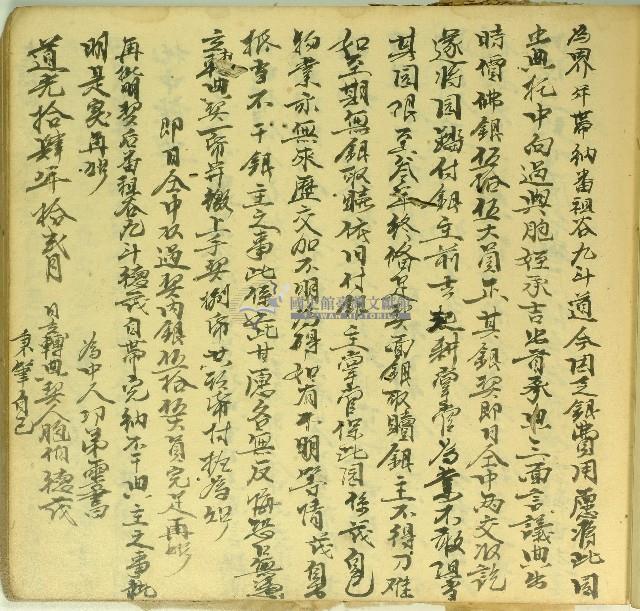 為界年帶納番租谷九斗道今因乏銀費用愿將此园
出典托中向過與胞姪承吉出首承坐三面言議典出
時價佛銀伍拾伍大員正其銀契即日仝中兩交收訖
遂將园踏付銀主前去起耕掌管為業不敢阻當
其园限至叁年終俻足契面銀取贖銀主不得刁难
如至期無銀取贖依旧付銀主掌管保此园係茂自己
物業亦無來歷交加不明為碍如有不明等情茂自
抵当不干銀主之事此係二比甘愿各無反悔恐口無憑
立轉典契一帋并繳上手契 帋共 帋付执為炤
即日仝中收過契內銀伍拾伍大員完足再炤
再批明契后番租谷九斗德茂自帶完納不干典主之事批
明是实再炤
為中人功弟靈書
道光拾肆年拾弍月 日立轉典契人胞伯德茂
秉筆自己
國立臺灣文獻館
TAIWAN HISTORICA